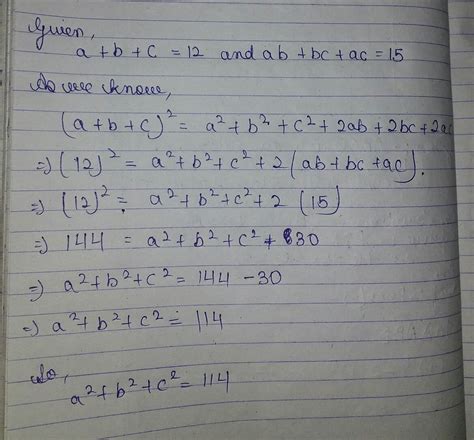 Given,
a + b + c = 12 and ab + bc + ac = 15
As we know,
(a + b + c)² = a² + b² + c² + 2ab + 2bc + 2ac
⇒ (12)² = a² + b² + c² + 2 (ab + bc + ac).
⇒ (12)² = a² + b² + c² + 2 (15)
⇒ 144 = a² + b² + c² + 30
⇒ a² + b² + c² = 144 - 30
⇒ a² + b² + c² = 114
So,
a² + b² + c² = 114